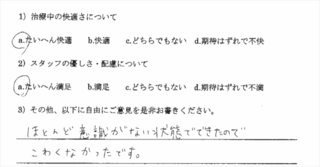 1) 治療中の快適さについて
a.たいへん快適 b.快適 c.どちらでもない d.期待はずれで不快
2) スタッフの優しさ・配慮について
a.たいへん満足 b.満足 c.どちらでもない d.期待はずれで不満
3) その他、以下に自由にご意見を是非お書きください。
ほとんど意識がない状態でできたので
こわくなかったです。